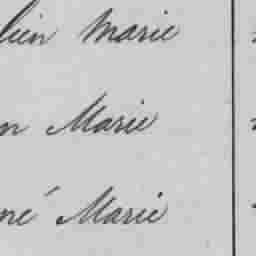 lien Marie
n Marie
né Marie